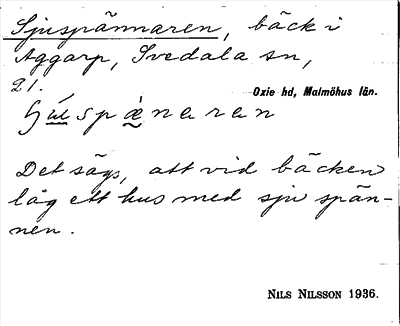 Sjuspännaren, bäck i
Aggarp, Svedala sn,
21.
Oxie hd, Malmöhus län.
spæ̀naran
Det sägs, att vid bäcken
låg ett hus med sju spän-
nen.
NILS NILSSON 1936.